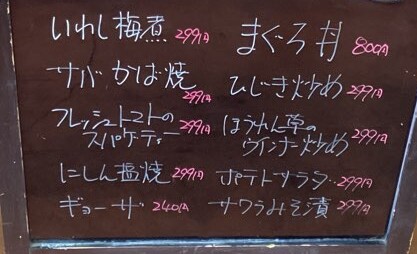 いわし梅煮 299円
サバかば焼
299円
フレッシュトマトの
スパゲティー 299円
にしん塩焼 299円
ギョーザ 240円
まぐろ丼 800円
ひじき炒め 299円
ほうれん草の
ウインナー炒め 299円
ポテトサラダ 299円
サワラみそ漬 299円